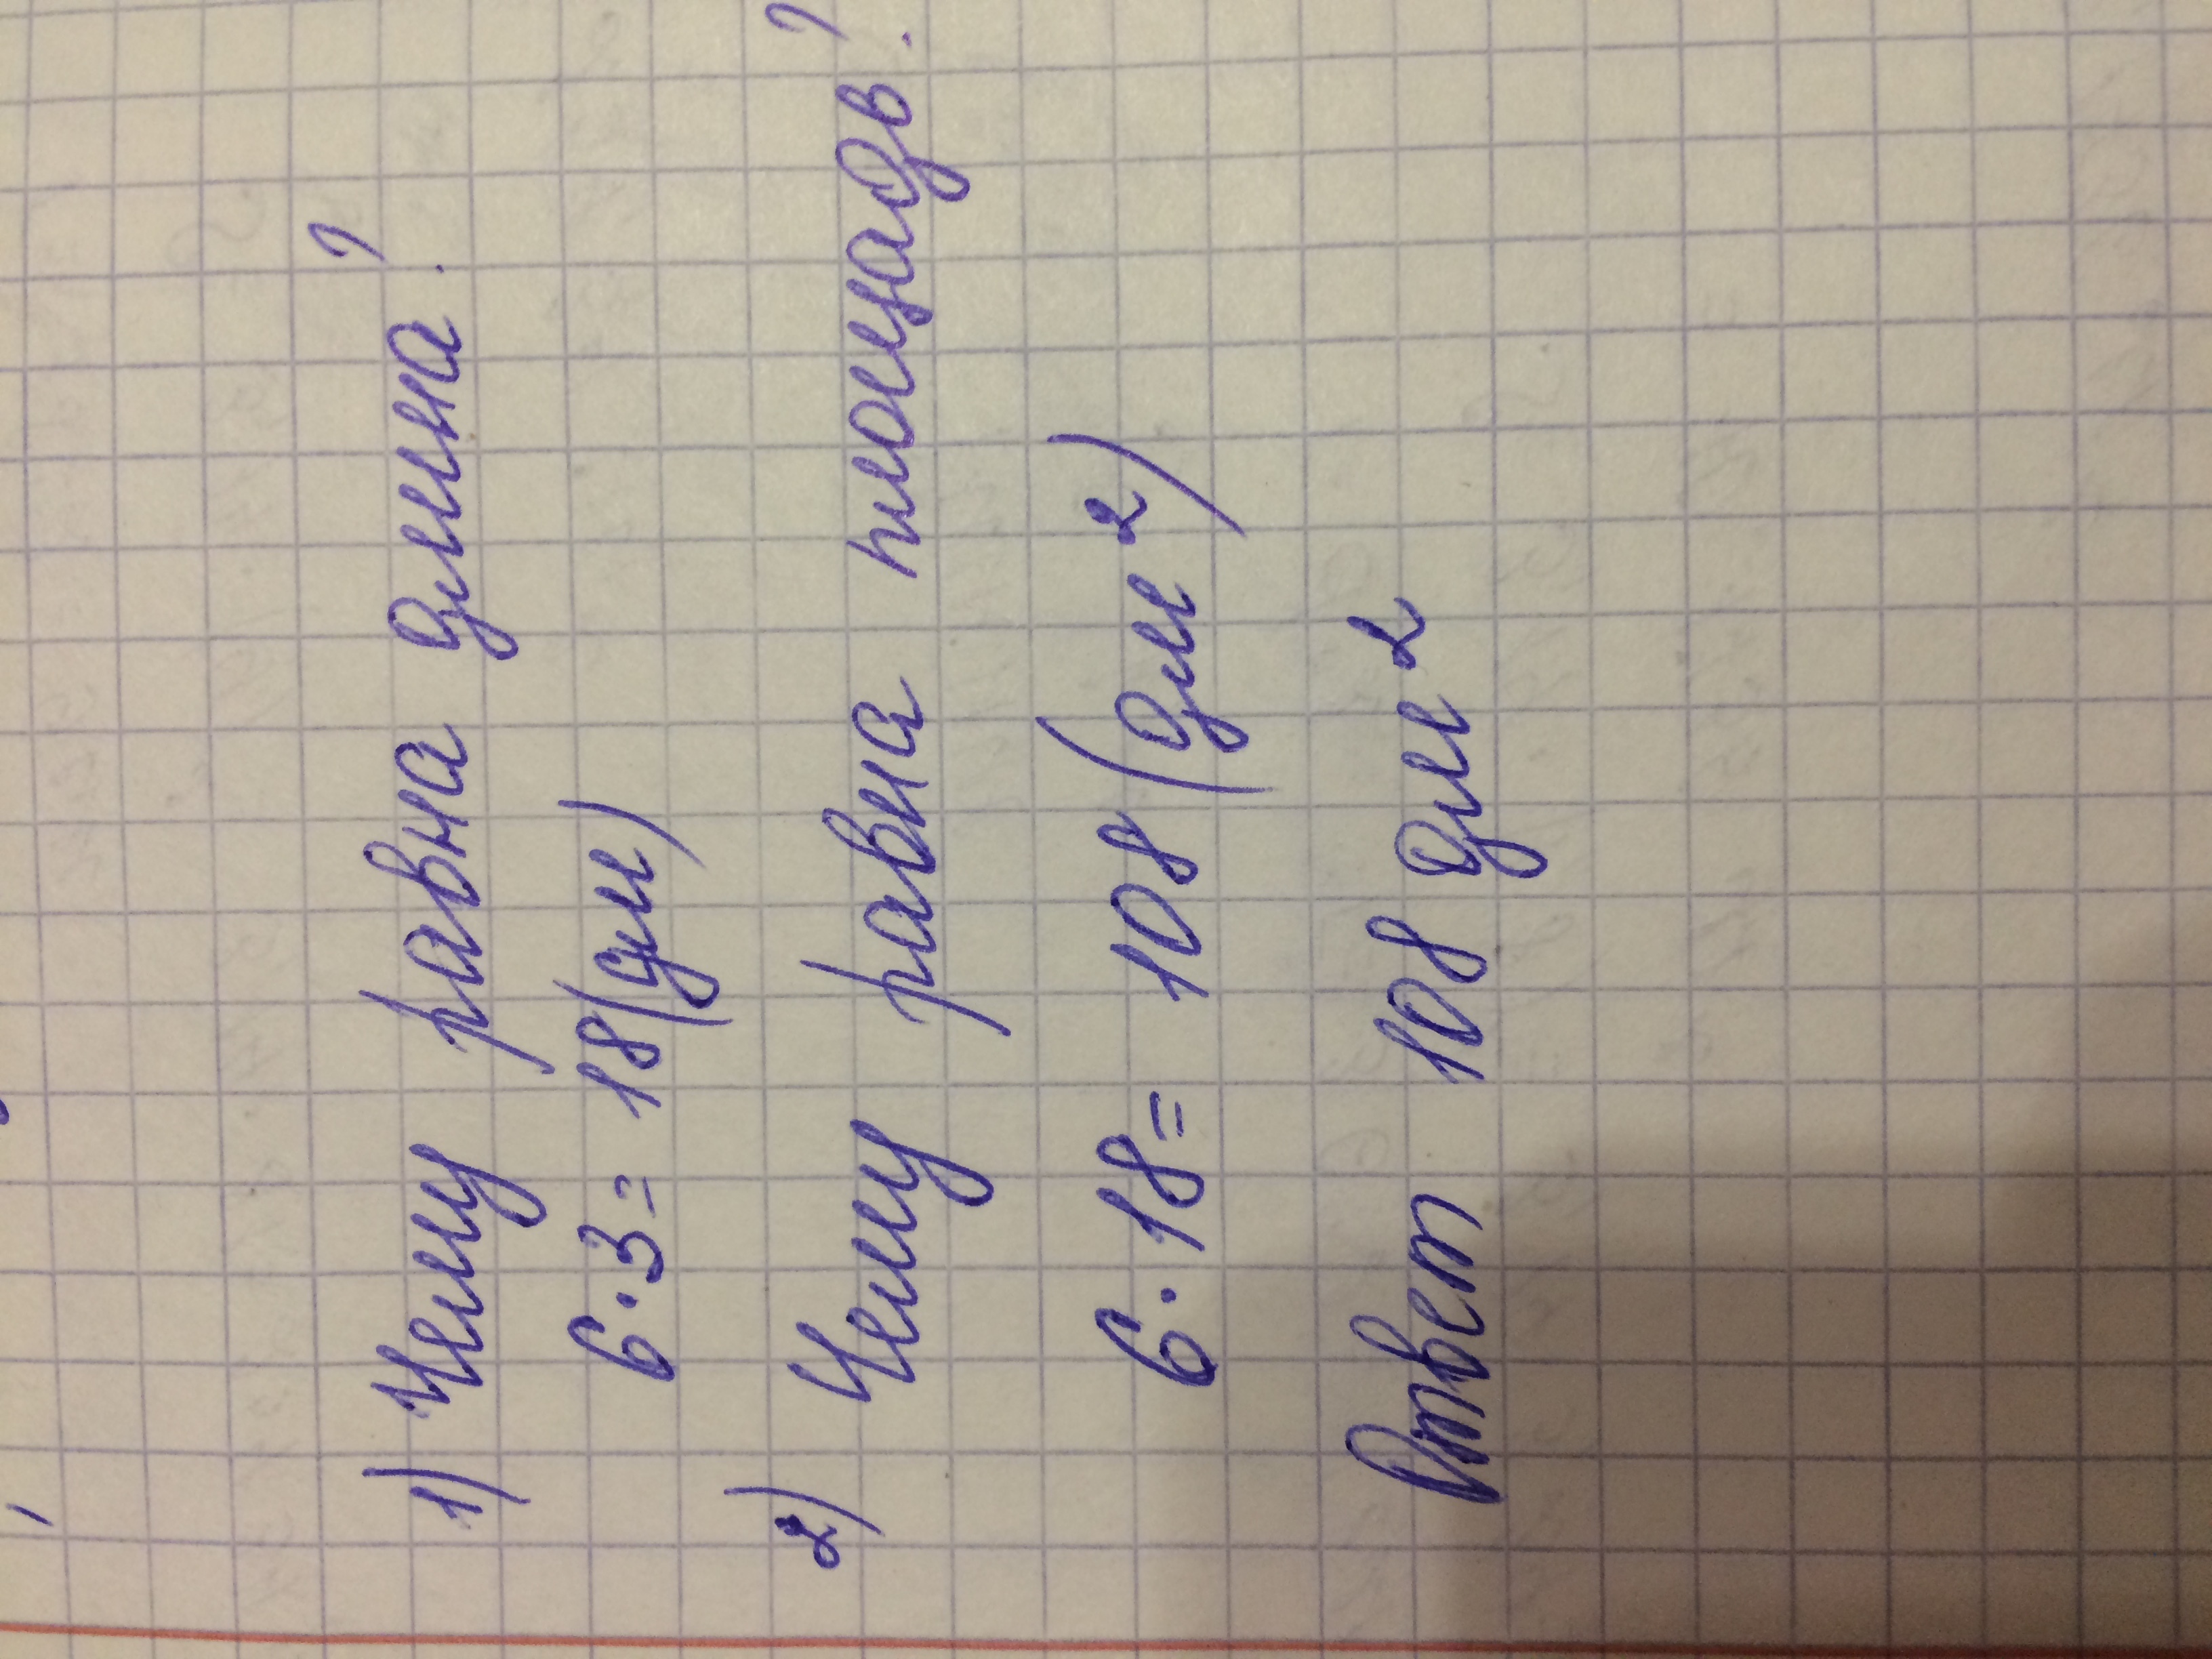 1) Чему равна длина?
6·3=18(дм)
2) Чему равна площадь?
6·18=108(дм²)
Ответ 108 дм²